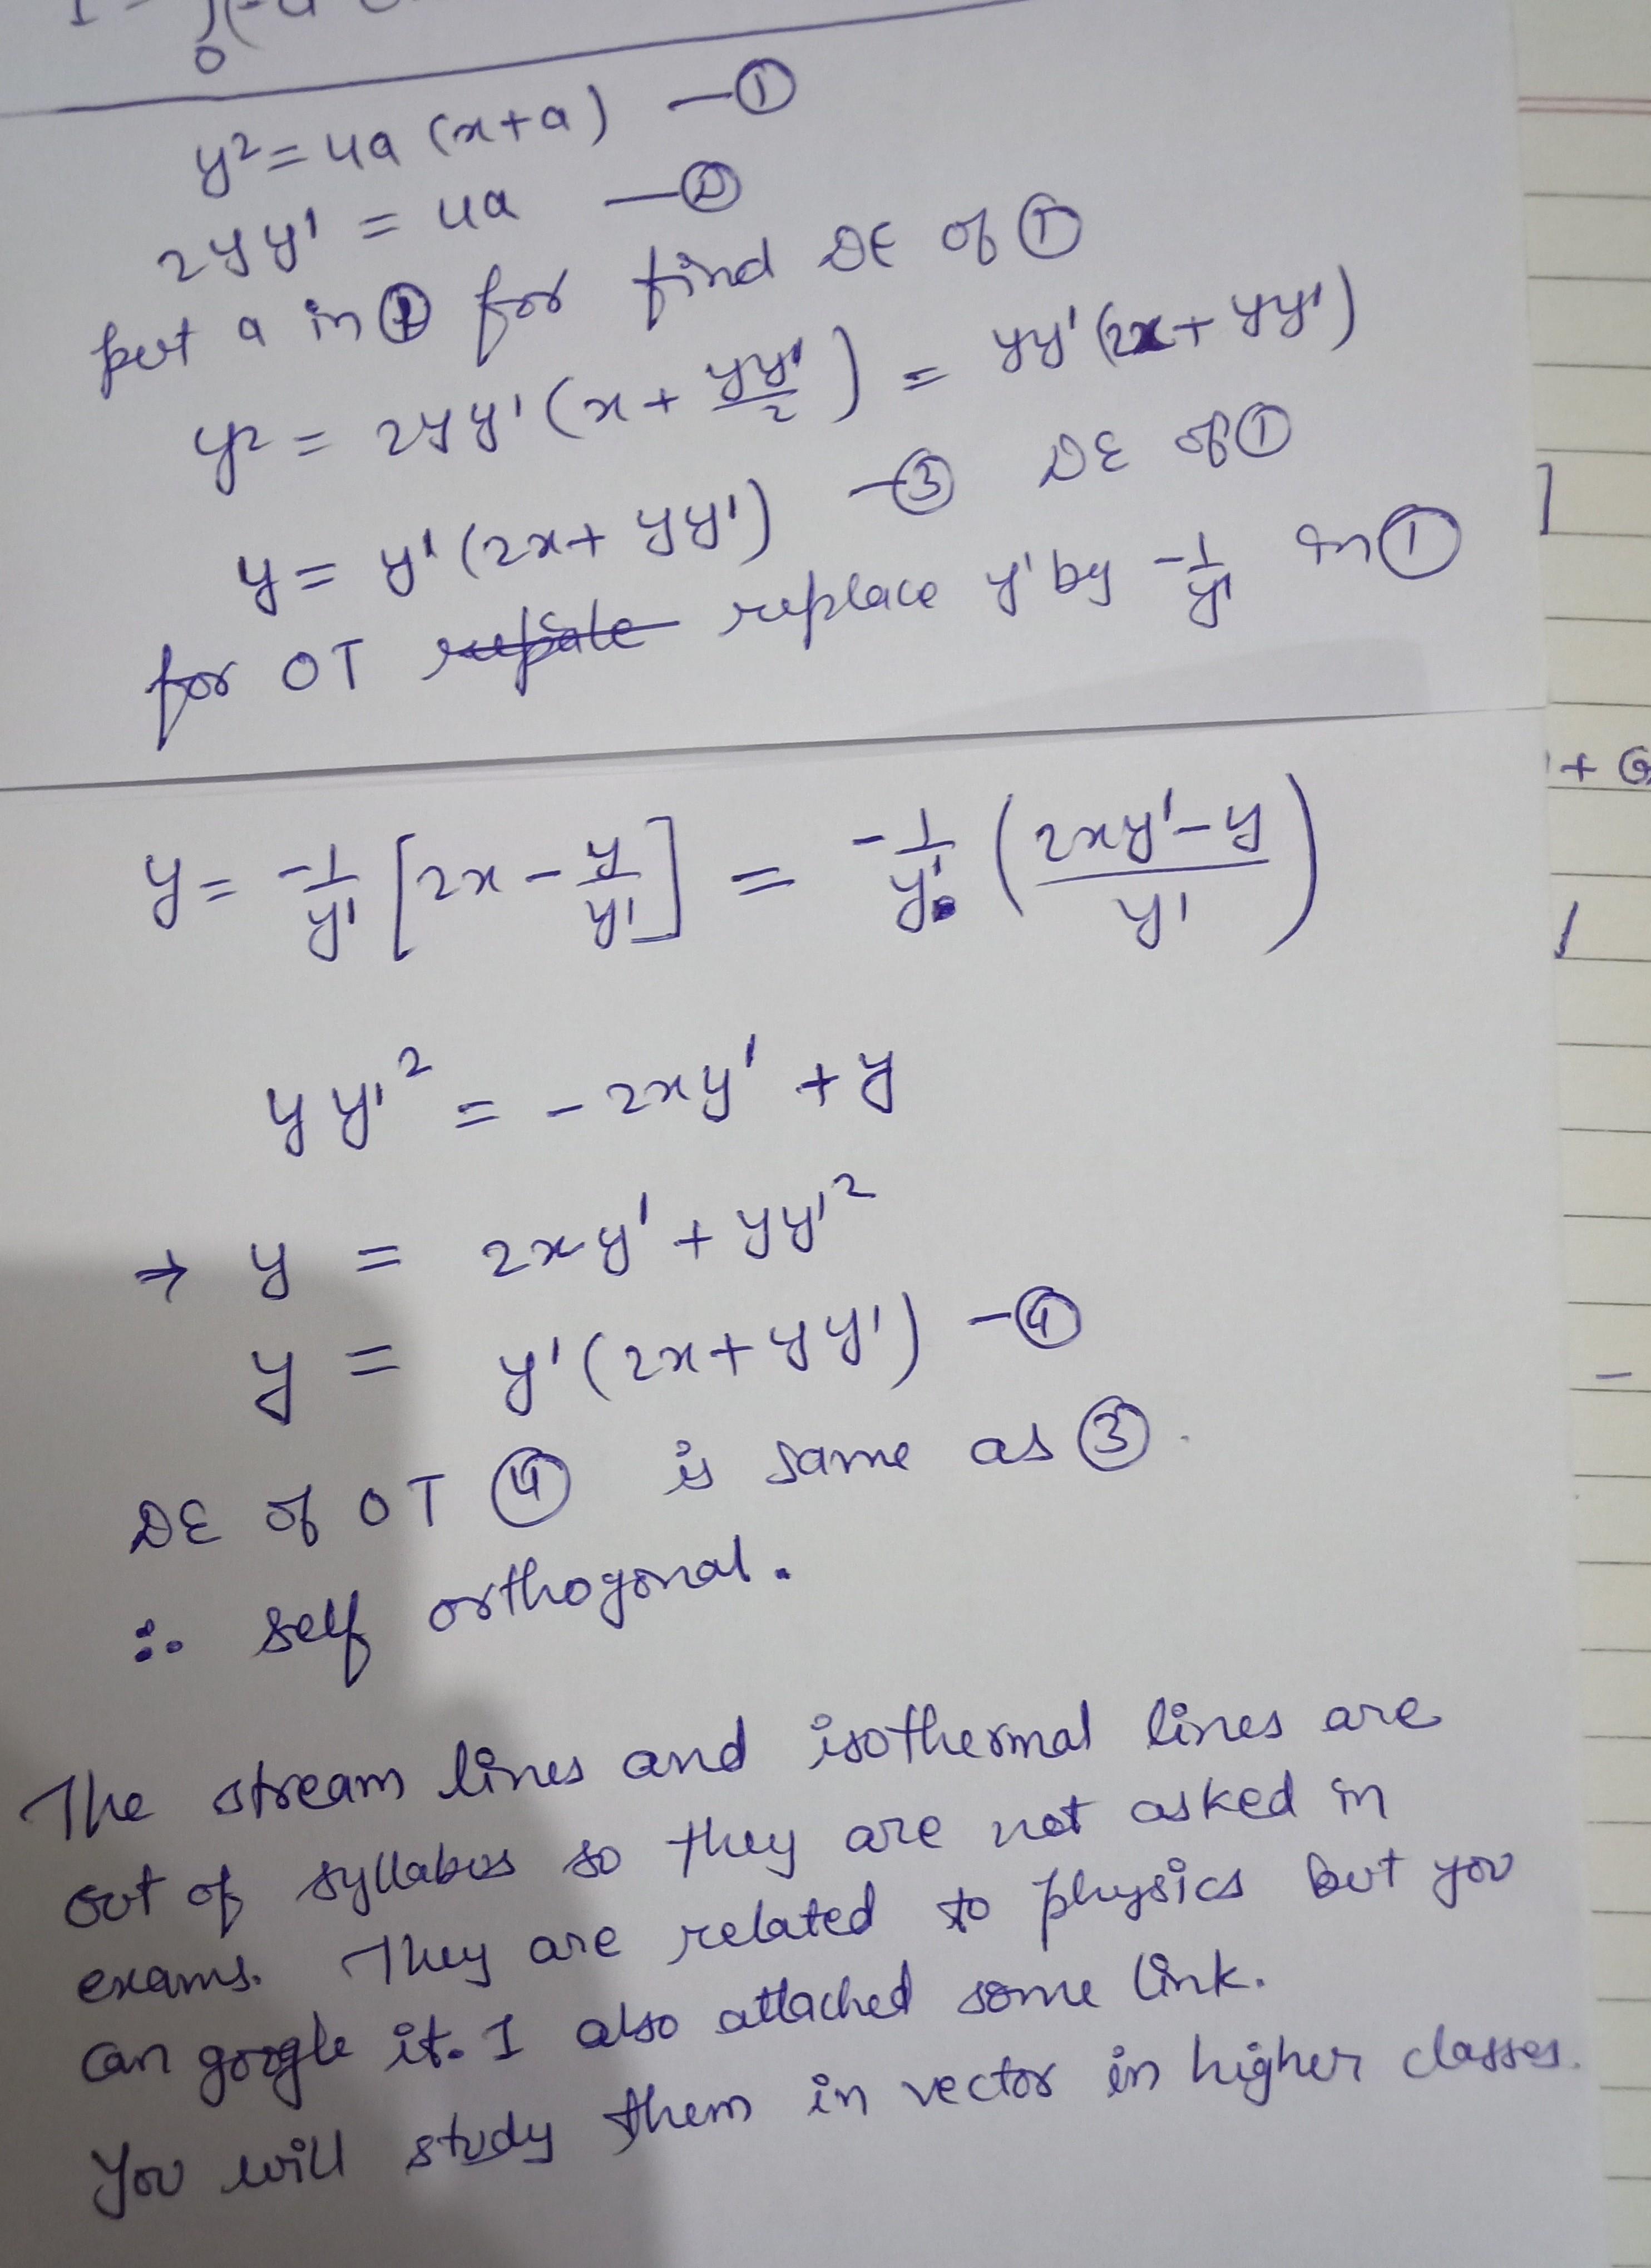 0
y² = 4a (x+a) —①
2yy' = 4a —②
put a in ① for find DE of ①
y² = 2yy' (x + yy'/2) = yy' (2x + yy')
y = y' (2x + yy') —③ DE of ①
for OT replace y' by -1/y' in ①
y = -1/y' [2x - y/y'] = -1/y' ((2xy' - y)/y')
yy'² = -2xy' + y
⇒ y = 2xy' + yy'²
y = y' (2x + yy') —④
DE of OT ④ is same as ③.
∴ self orthogonal.
The stream lines and isothermal lines are
out of syllabus so they are not asked in
exams. They are related to physics but you
can google it. I also attached some link.
You will study them in vector in higher classes.